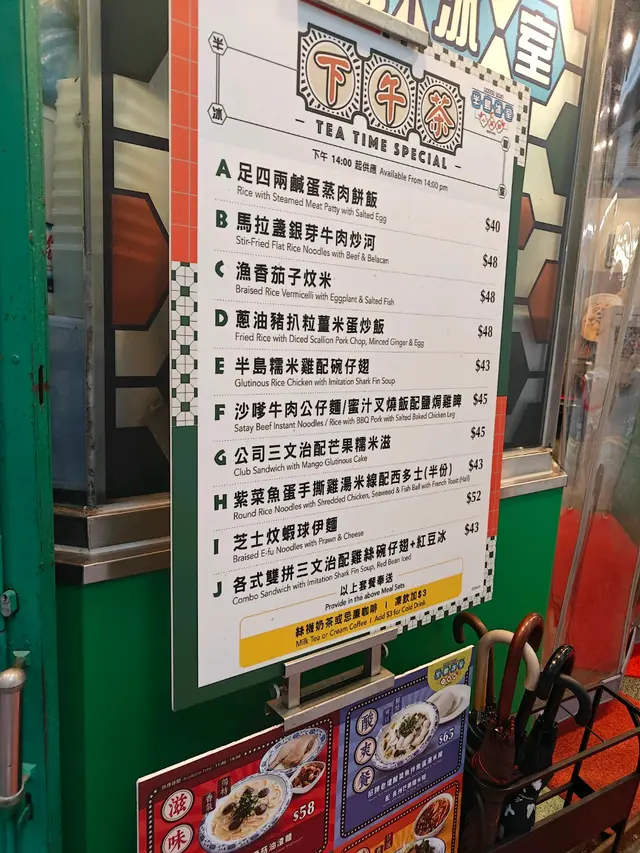 冰室
半
冰
下午茶
TEA TIME SPECIAL
下午 14:00 起供應 Available From 14:00 pm
A 足四兩鹹蛋蒸肉餅飯 $40
Rice with Steamed Meat Patty with Salted Egg
B 馬拉盞銀芽牛肉炒河 $48
Stir-Fried Flat Rice Noodles with Beef & Belacan
C 漁香茄子炆米 $48
Braised Rice Vermicelli with Eggplant & Salted Fish
D 蔥油豬扒粒薑米蛋炒飯 $48
Fried Rice with Diced Scallion Pork Chop, Minced Ginger & Egg
E 半島糯米雞配碗仔翅 $43
Glutinous Rice Chicken with Imitation Shark Fin Soup
F 沙嗲牛肉公仔麵/蜜汁叉燒飯配鹽焗雞髀 $45
Satay Beef Instant Noodles / Rice with BBQ Pork with Salted Baked Chicken Leg
G 公司三文治配芒果糯米滋 $45
Club Sandwich with Mango Glutinous Cake
H 紫菜魚蛋手撕雞湯米線配西多士(半份) $43
Round Rice Noodles with Shredded Chicken, Seaweed & Fish Ball with French Toast (Half)
I 芝士炆蝦球伊麵 $52
Braised E-fu Noodles with Prawn & Cheese
J 各式雙拼三文治配雞絲碗仔翅+紅豆冰 $43
Combo Sandwich with Imitation Shark Fin Soup, Red Bean Iced
以上套餐奉送
Provide in the above Meal Sets
絲襪奶茶或忌廉咖啡 | 凍飲加$3
Milk Tea or Cream Coffee | Add $3 for Cold Drink
滋味
$58
酸爽餐
$65